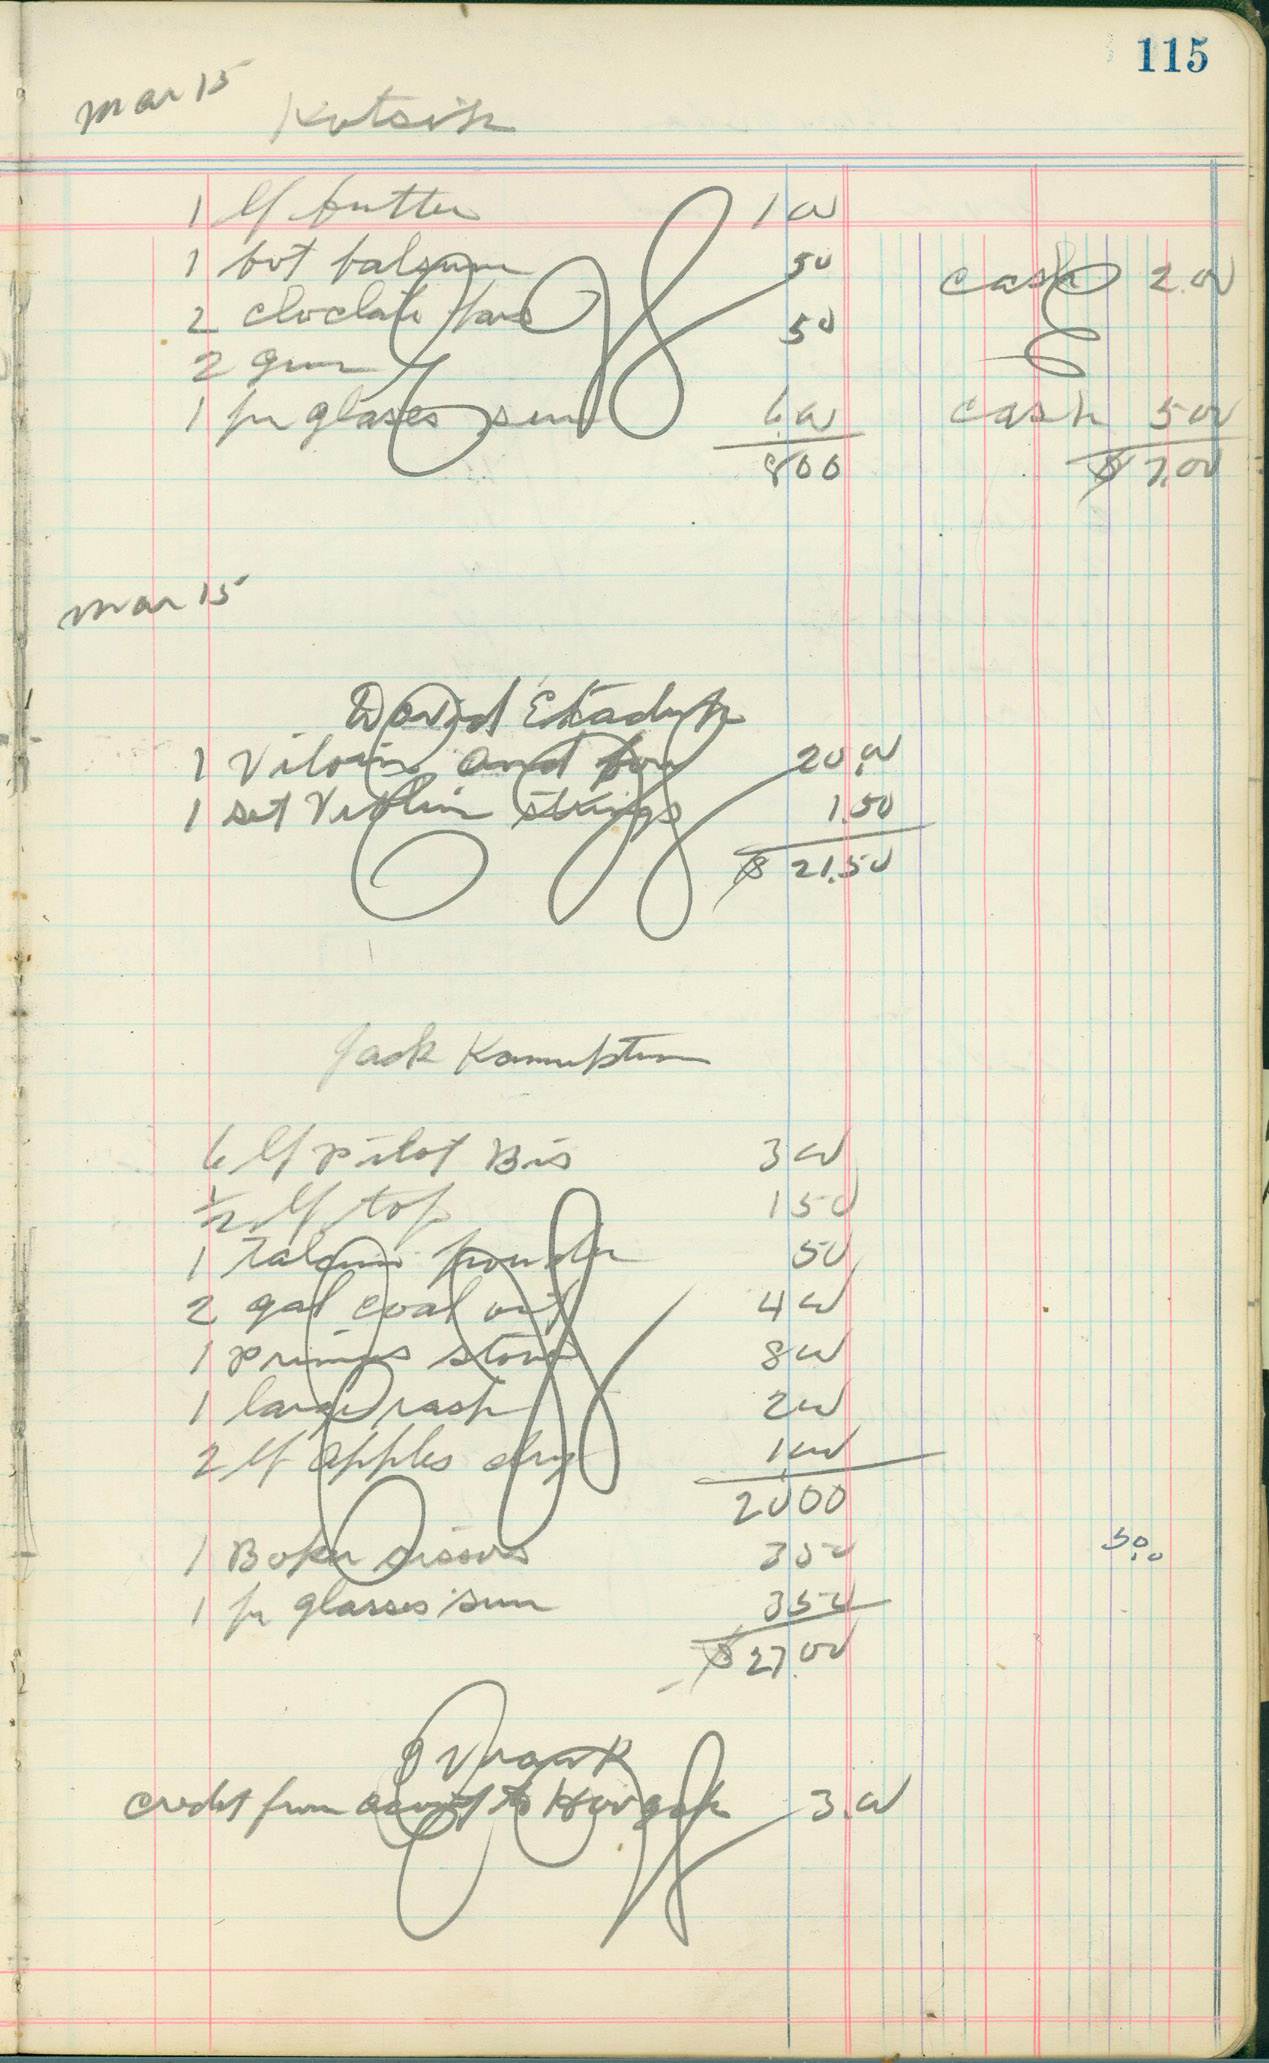 115
Mar 15
Kutsik
1 lb butter 1 00
1 bot balsum 50
cash 2.00
2 choclate bars 50
2 gum
1 pr glases sun 6.00
cash 5 00
8 00
$ 7.00
Mar 15
David
1 Viloin and bow 20.00
1 set Violin strings 1.50
$ 21.50
Jack
6 lb pilot Bis 3 00
1/2 lb 1 50
1 Talcum powder 50
2 gal coal oil 4 00
1 primus stove 8 00
1 large 2 00
2 lb apples dry 1.00
20 00
1 Boker sissors 3 50
50.00
1 pr glasses sun 3 50
$ 27.00
credit from to 3.00